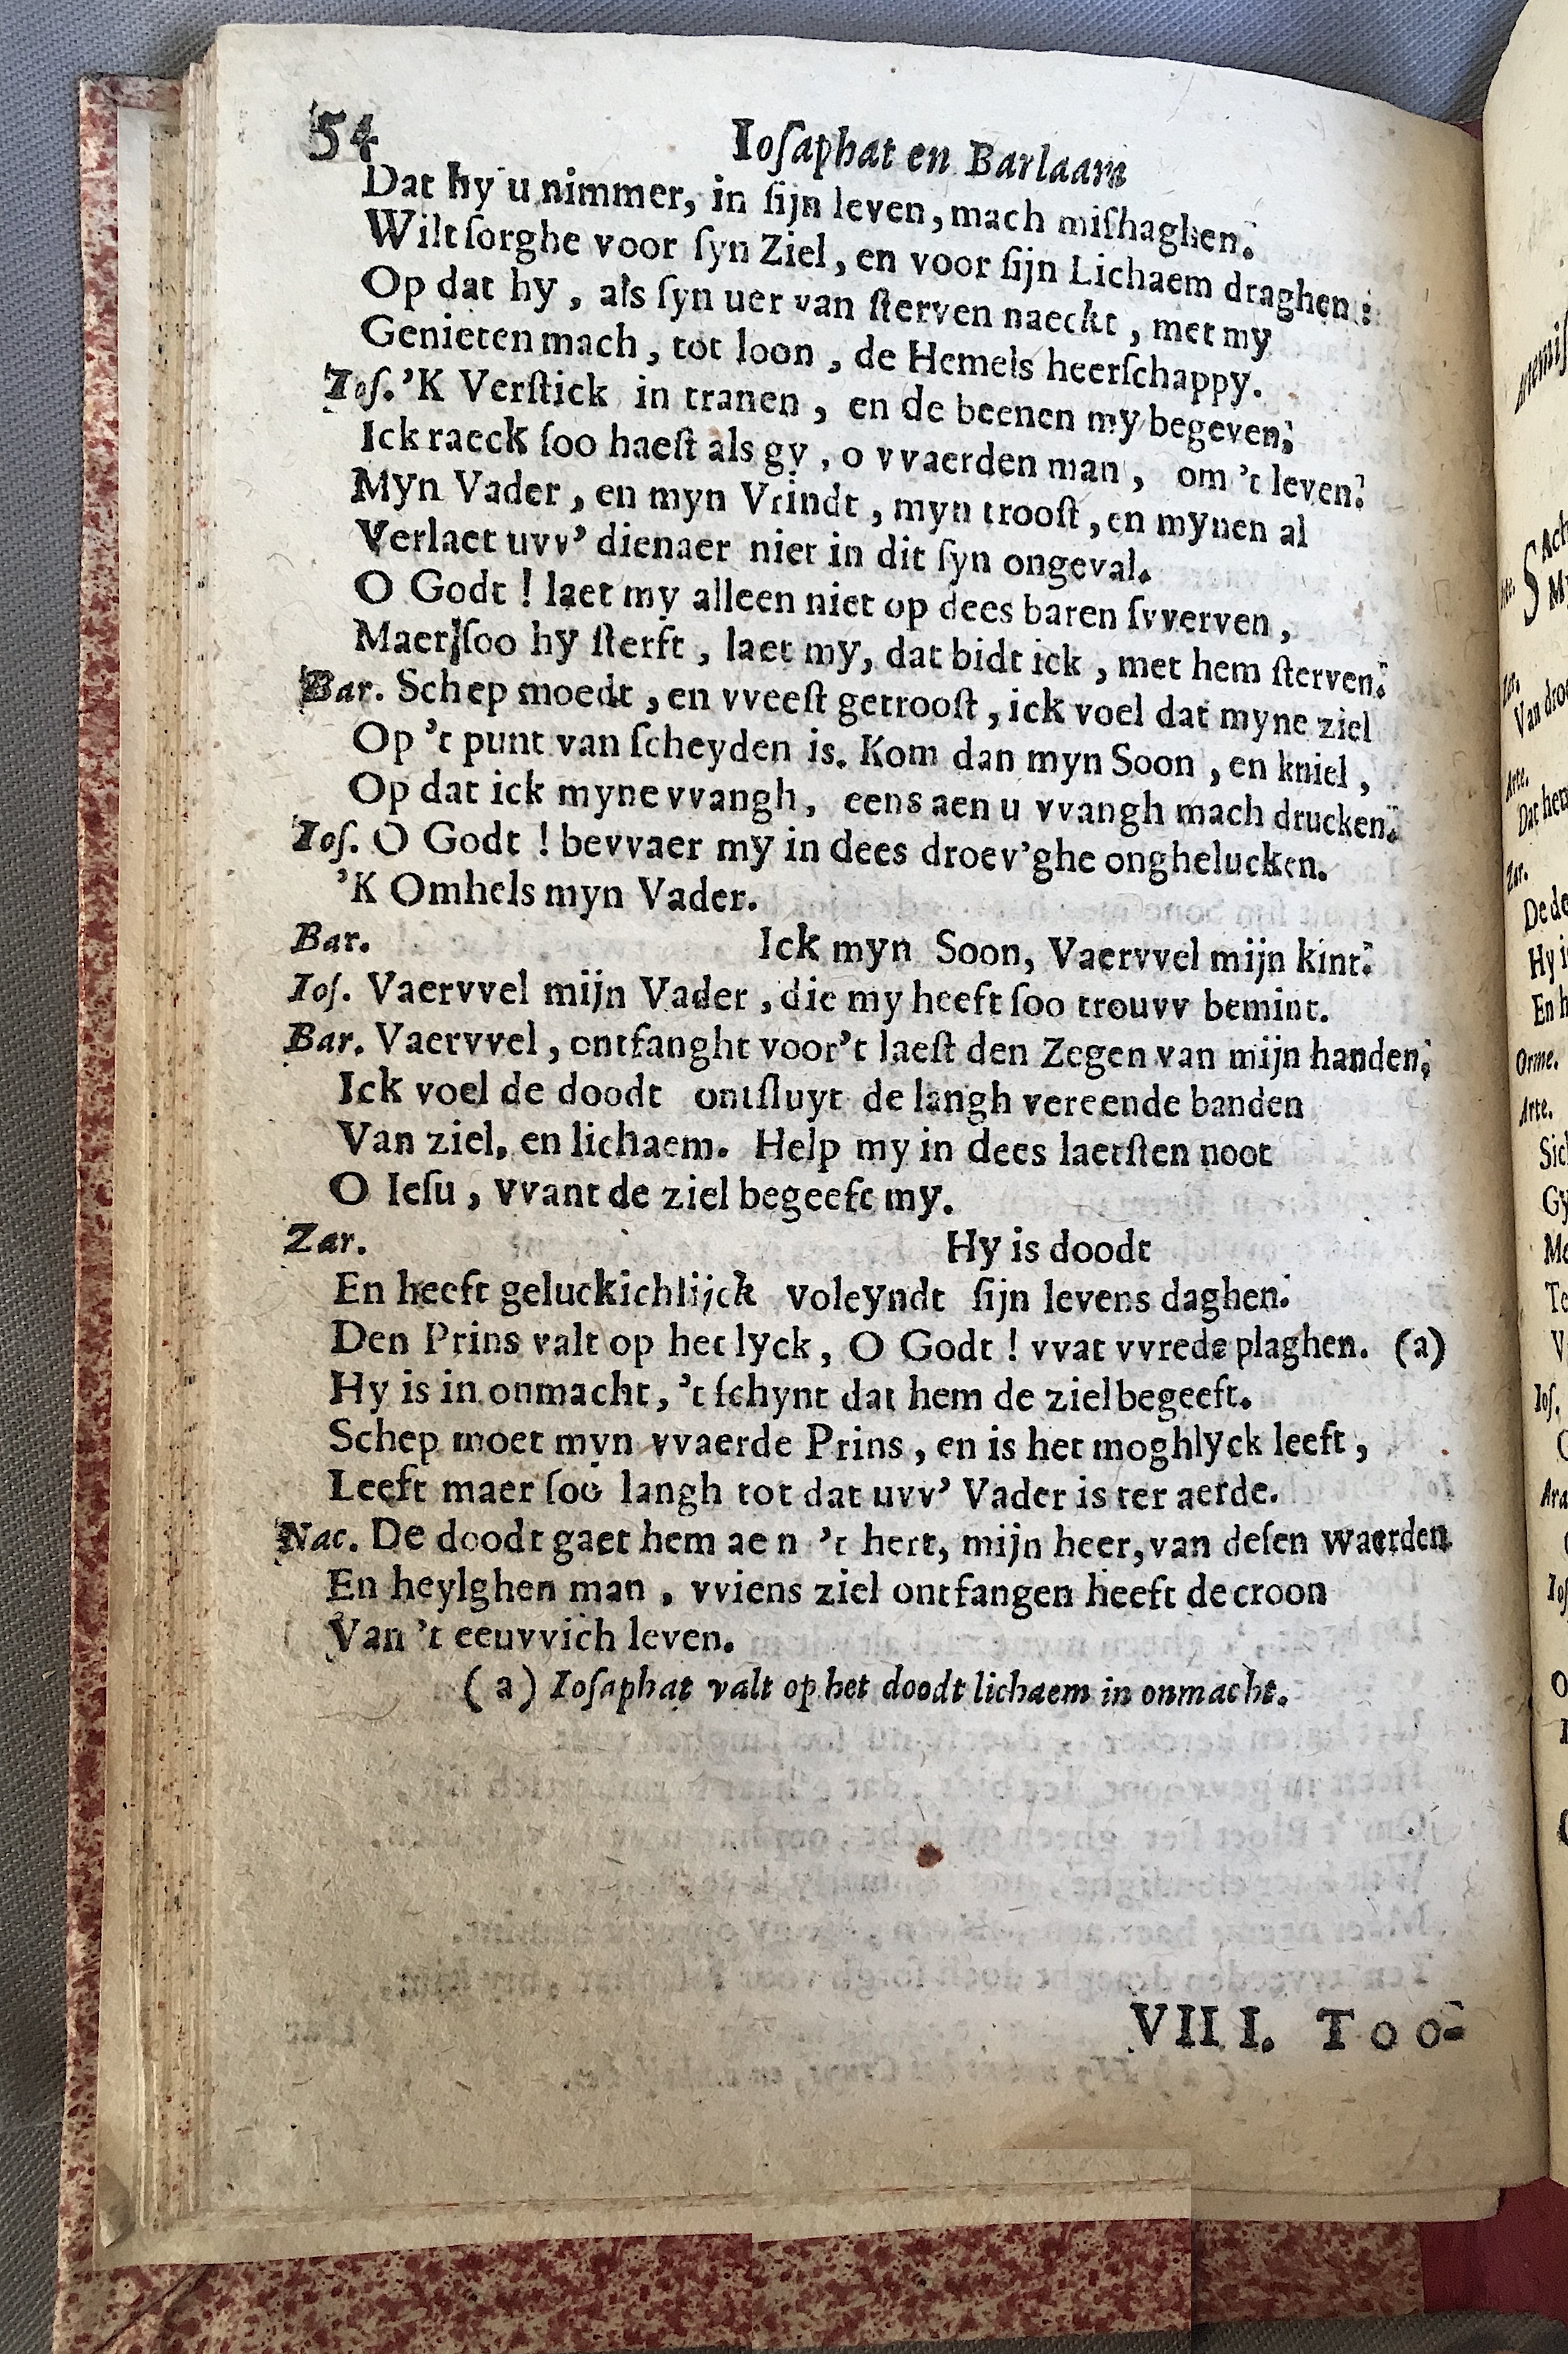 54 Ioſaphat en Barlaam
Dat hy u nimmer, in ſijn leven, mach miſhaghen.
Wilt ſorghe voor ſyn Ziel, en voor ſijn Lichaem draghen:
Op dat hy, als ſyn uer van ſterven naeckt, met my
Genieten mach, tot loon, de Hemels heerſchappy.
Ioſ. 'K Verſtick in tranen, en de beenen my begeven;
Ick raeck ſoo haeſt als gy, o vvaerden man, om 't leven.
Myn Vader, en myn Vrindt, myn trooſt, en mynen al
Verlaet uvv' dienaer niet in dit ſyn ongeval.
O Godt! laet my alleen niet op dees baren ſvverven,
Maer ſoo hy ſterft, laet my, dat bidt ick, met hem ſterven.
Bar. Schep moedt, en vveeſt getrooſt, ick voel dat myne ziel
Op 't punt van ſcheyden is. Kom dan myn Soon, en kniel,
Op dat ick myne vvangh, eens aen u vvangh mach drucken.
Ioſ. O Godt! bevvaer my in dees droev'ghe onghelucken.
'K Omhels myn Vader.
Bar. Ick myn Soon, Vaervvel mijn kint.
Ioſ. Vaervvel mijn Vader, die my heeft ſoo trouvv bemint.
Bar. Vaervvel, ontfanght voor't laeſt den Zegen van mijn handen,
Ick voel de doodt ontſluyt de langh vereende banden
Van ziel, en lichaem. Help my in dees laetſten noot
O Ieſu, vvant de ziel begeeft my.
Zar. Hy is doodt
En heeft geluckichlijck voleyndt ſijn levens daghen.
Den Prins valt op het lyck, O Godt! vvat vvrede plaghen. (a)
Hy is in onmacht, 't ſchynt dat hem de ziel begeeft.
Schep moet myn vvaerde Prins, en is het moghlyck leeft,
Leeft maer ſoo langh tot dat uvv' Vader is ter aerde.
Nac. De doodt gaet hem ae n 't hert, mijn heer, van deſen waerden
En heylghen man, vviens ziel ontfangen heeft de croon
Van 't eeuvvich leven.
(a) Ioſaphat valt op het doodt lichaem in onmacht.
VIII. Too-